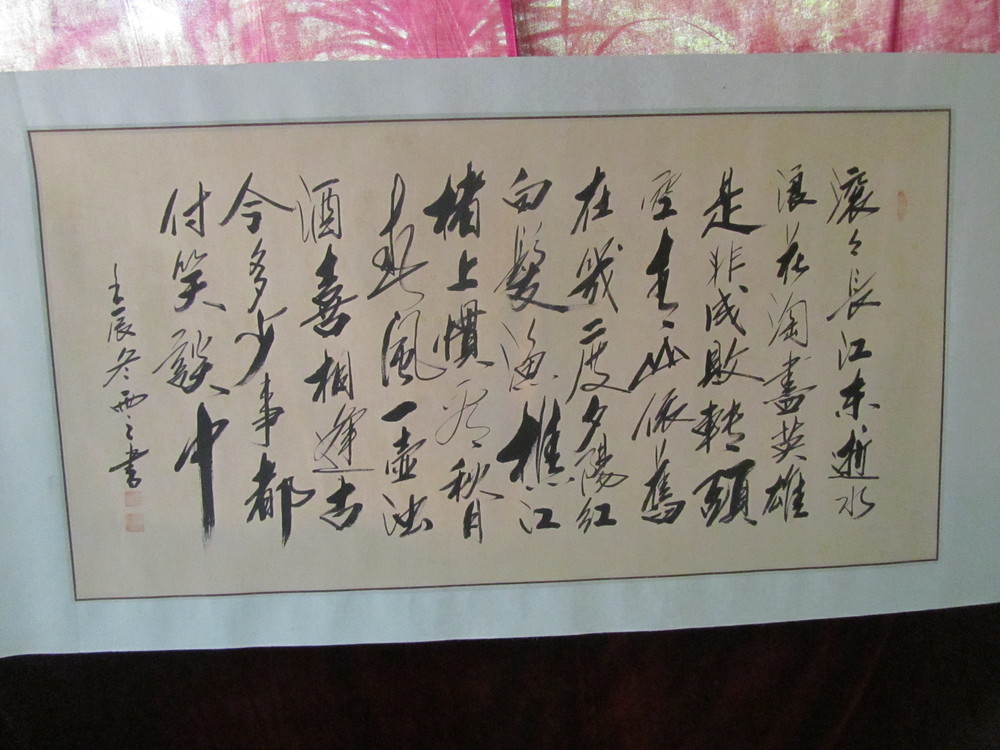 滚々長江东逝水
浪花淘盡英雄
是非成敗轉頭
空青山依舊
在幾度夕陽紅
白髮渔樵江
渚上慣看秋月
春風一壶浊
酒喜相逢古
今多少事都
付笑談中
壬辰冬雨之書